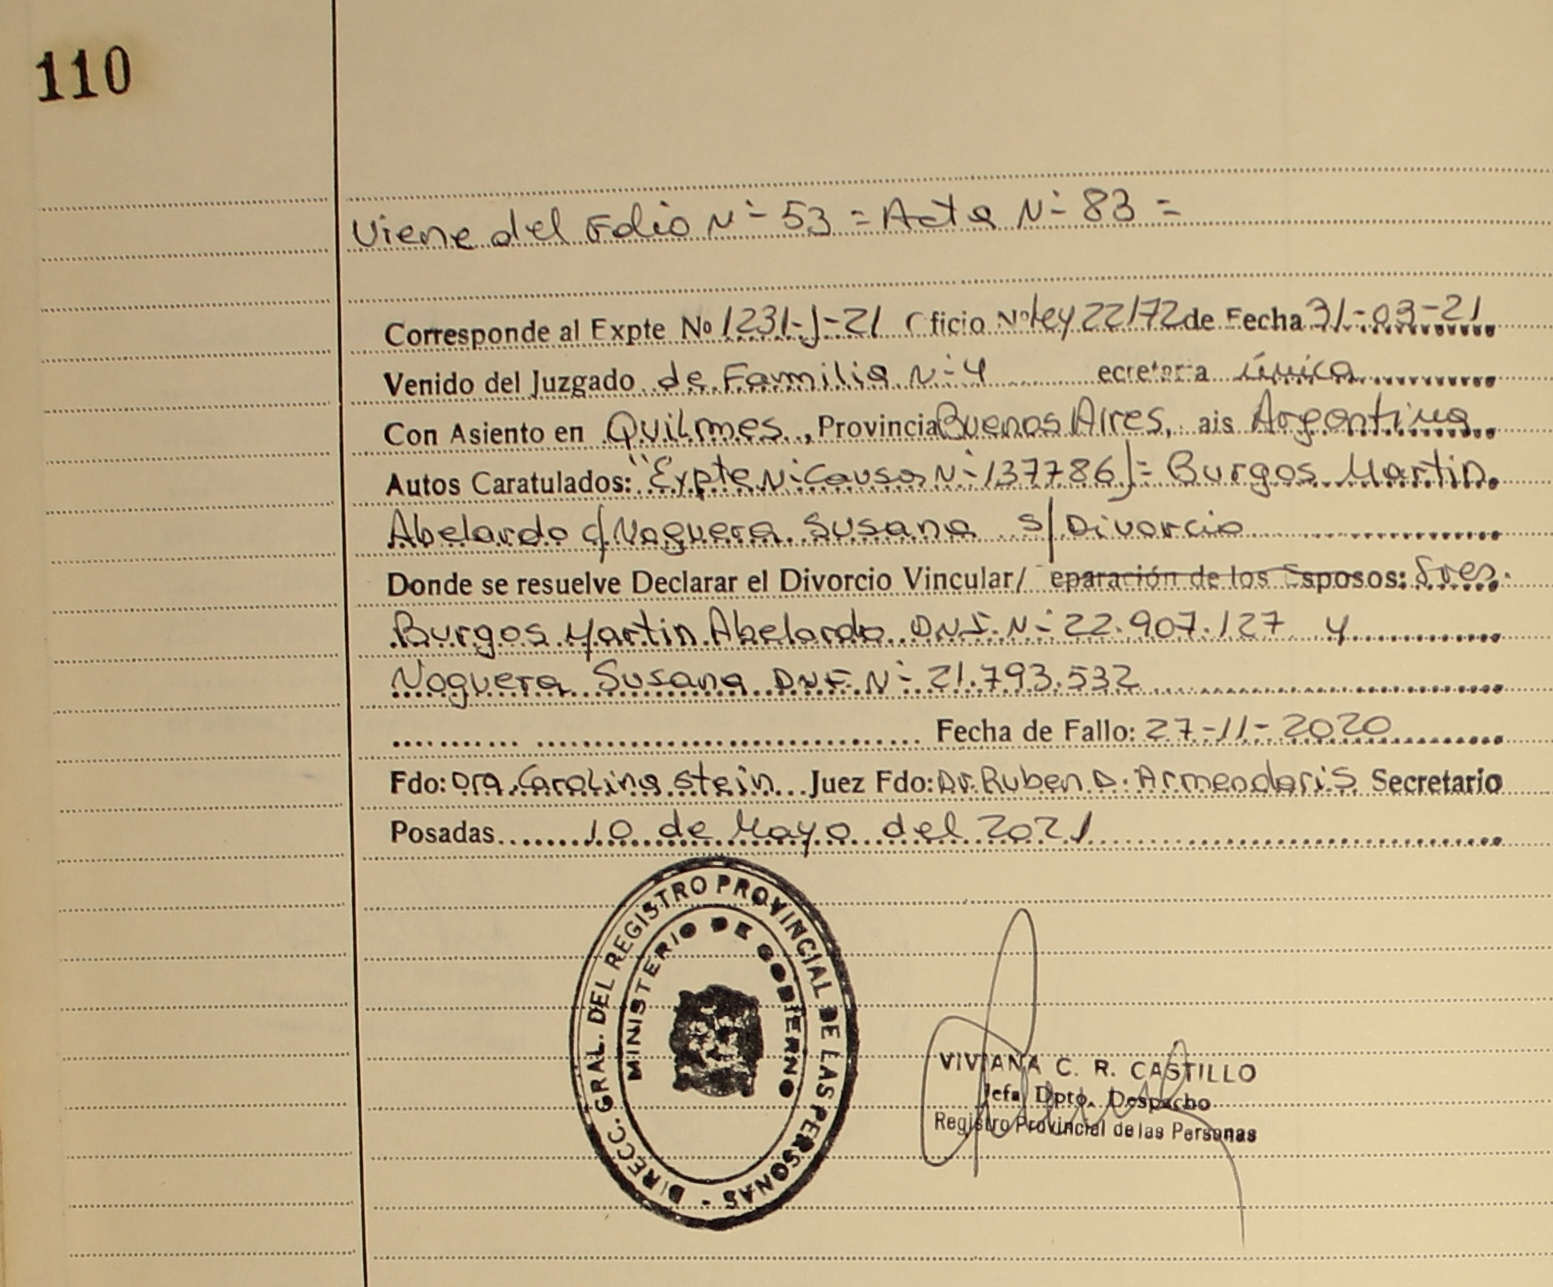 110
Viene del Folio Nº 53 = Acta Nº 83 =
Corresponde al Expte Nº 1231-J-21 Oficio Nº ley 22172 de Fecha 31-03-21
Venido del Juzgado de Familia Nº 4 ecretaria única
Con Asiento en Quilmes, Provincia Buenos Aires, ais Argentina
Autos Caratulados: "Expte Nº Causa Nº 137786)= Burgos Martin
Abelardo c/ Noguera Susana s/ Divorcio
Donde se resuelve Declarar el Divorcio Vincular/ eparación de los Esposos: Sres.
Burgos Martin Abelardo D.N.I. Nº 22.907.127 y
Noguera Susana D.N.I. Nº 21.793.532
Fecha de Fallo: 27-11-2020
Fdo: Dra. Carolina Stein Juez Fdo: Dr. Ruben D. Armendaris Secretario
Posadas 10 de Mayo del 2021
DIRECC. GRAL. DEL REGISTRO PROVINCIAL DE LAS PERSONAS -
MINISTERIO DE GOBIERNO
VIVIANA C. R. CASTILLO
Jefa Dpto. Despacho
Registro Provincial de las Personas